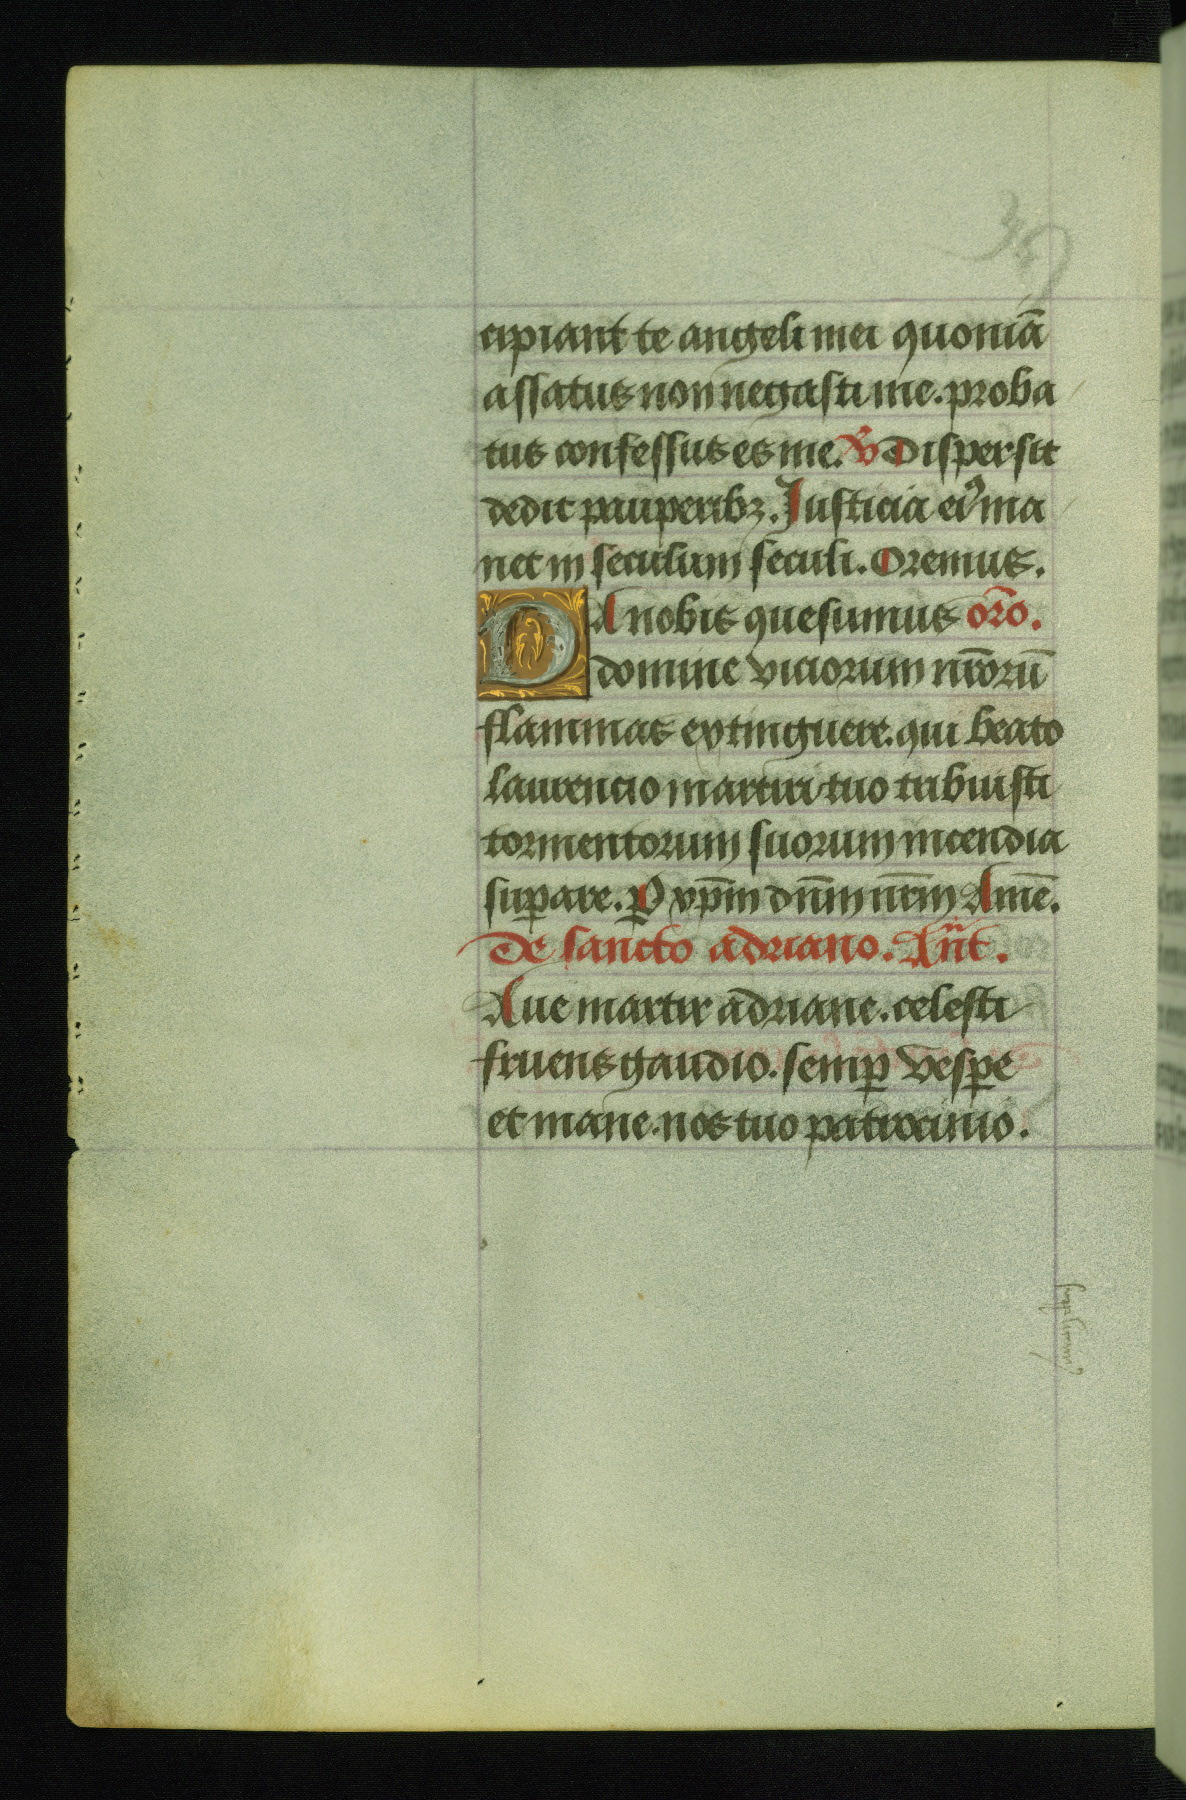 cipiant te angeli mei quoniā
assatus non negasti me. proba
tus confessus es me. V̄ Dispersit
dedit pauperibꝫ. Justicia eiꝰ ma
net in seculum seculi. Oremus.
DA nobis quesumus oro̅.
domine viciorum nr̄orū
flammas extinguere. qui beato
laurencio martiri tuo tribuisti
tormentorum suorum incendia
suꝑare. P xp̄m dn̄m nr̄m Amē.
De sancto adriano. An̄t.
Aue martir adriane. celesti
fruens gaudio. semꝑ vesꝑe
et mane. nos tuo patrocinio.